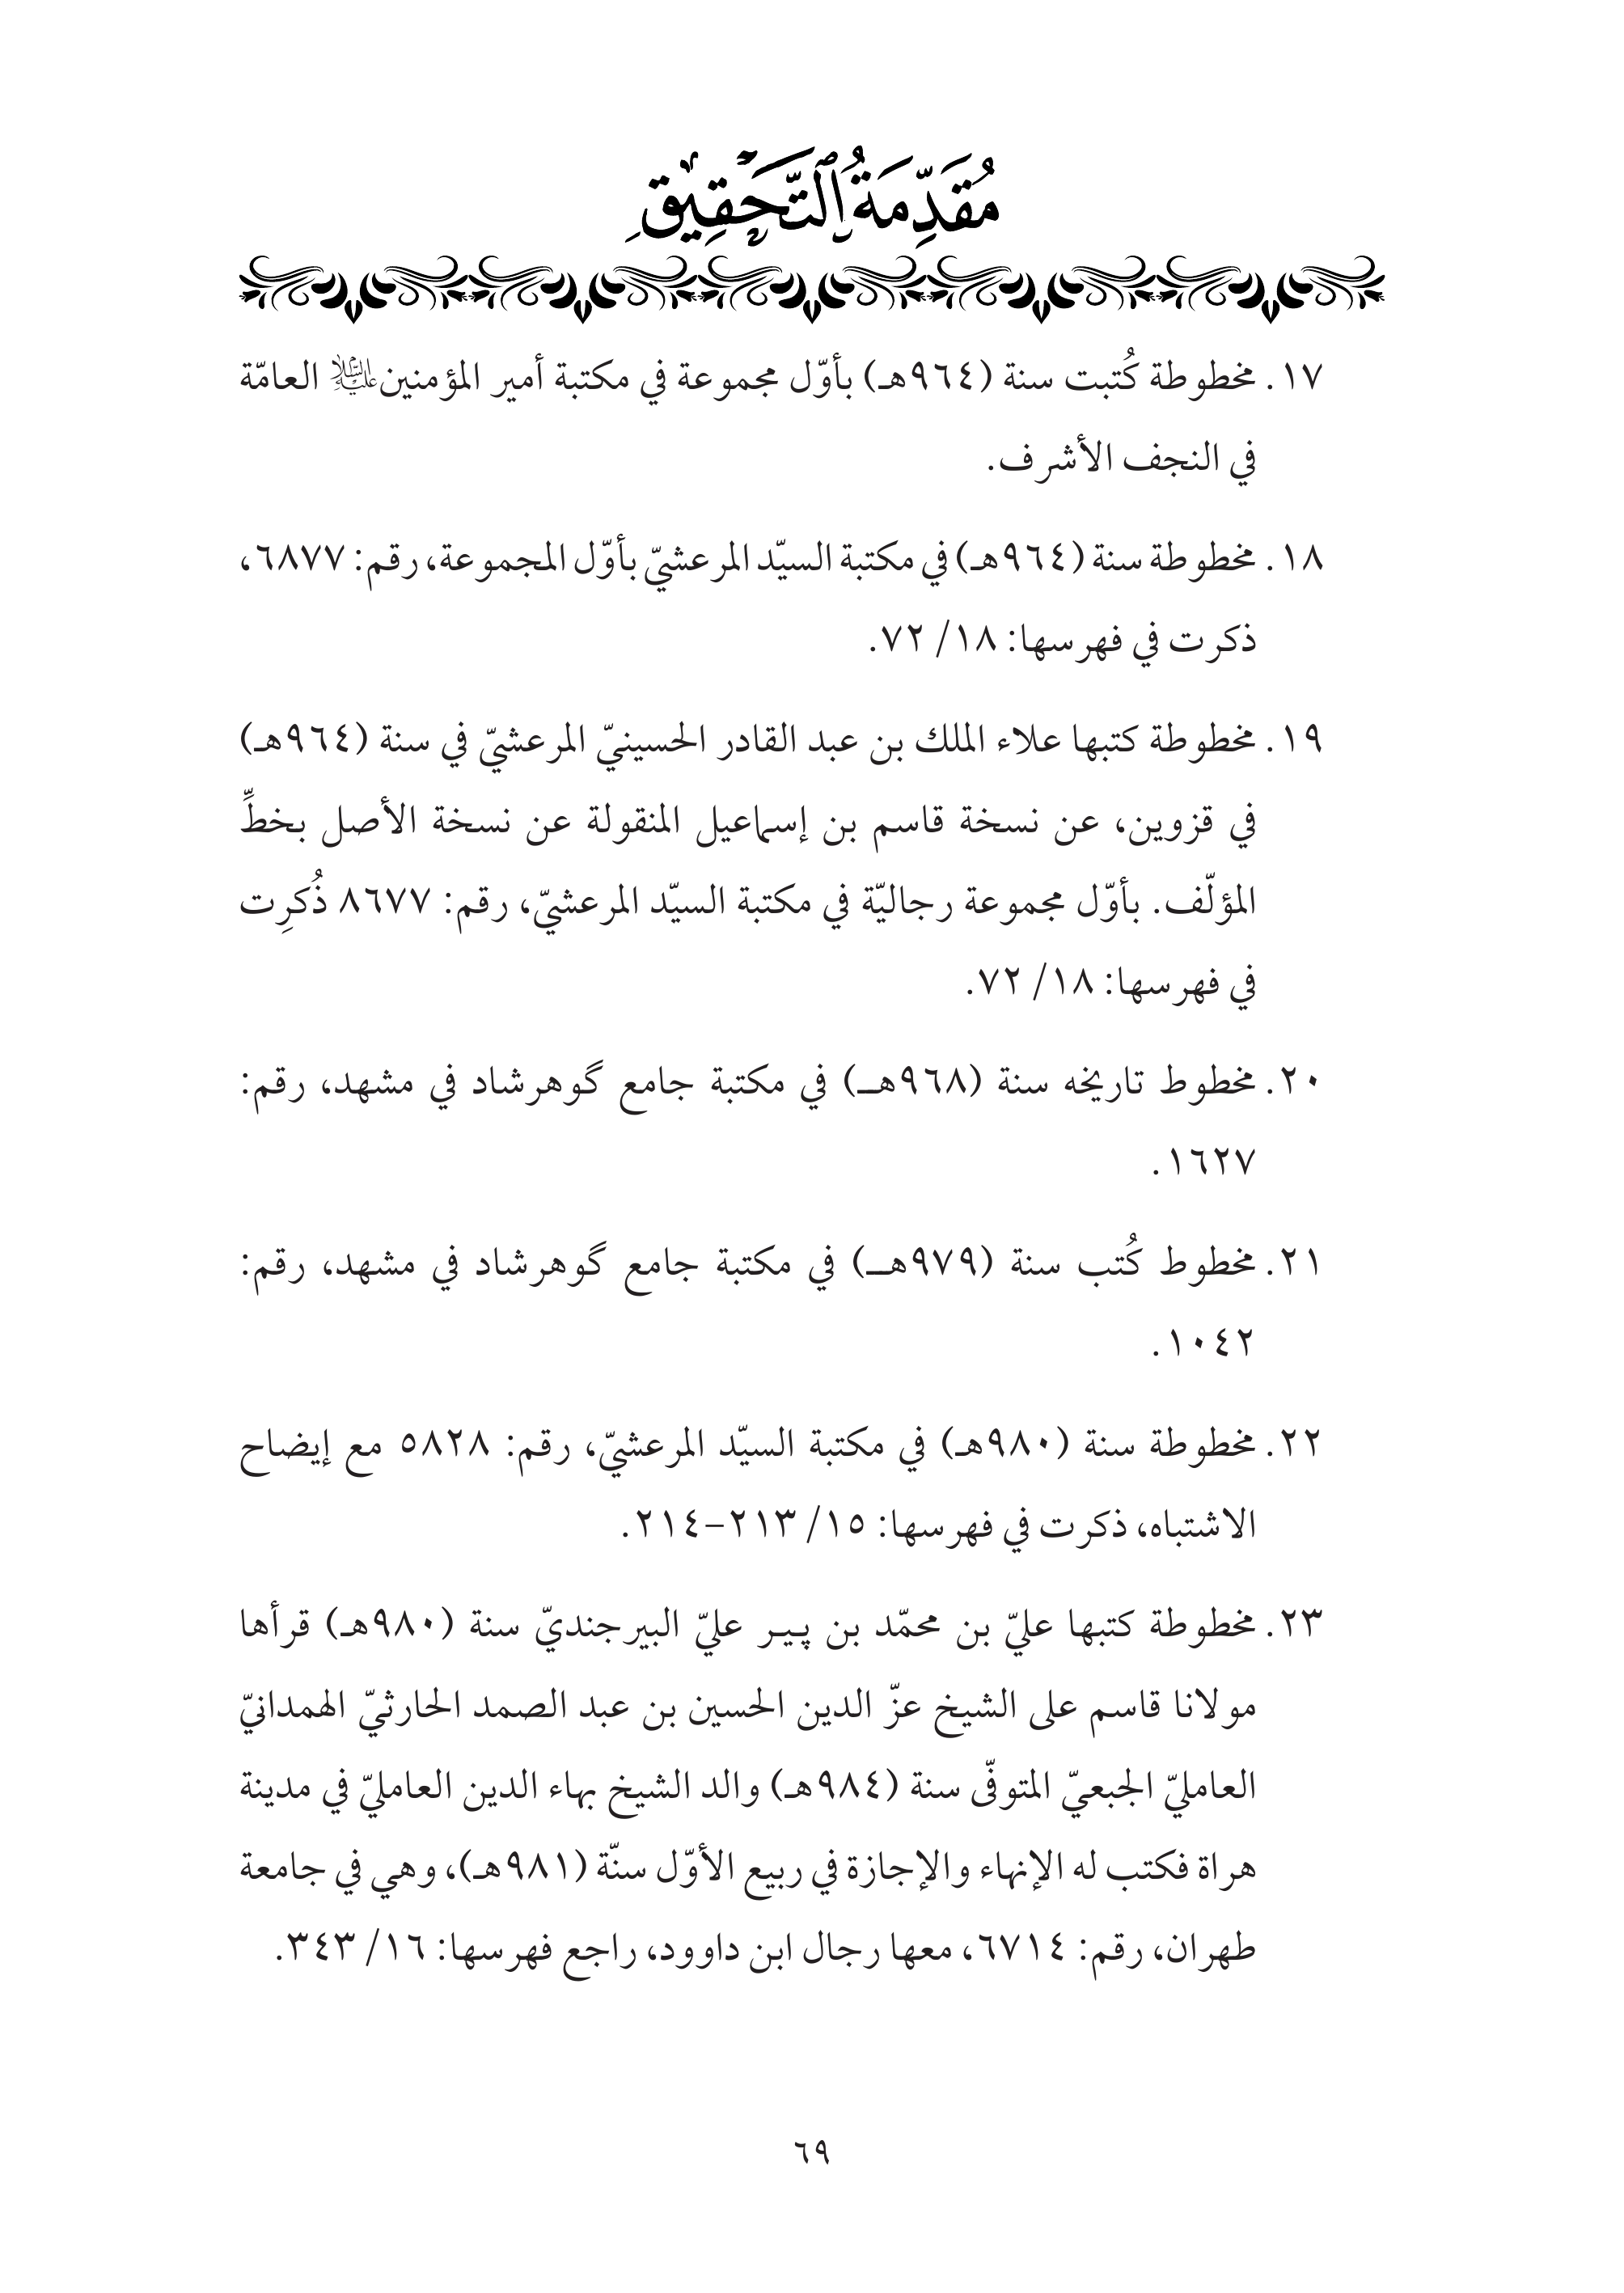 مُقَدِّمَةُ ٱلتَّحْقِيْقِ
١٧. مخطوطة كُتبت سنة (٩٦٤هـ) بأوّل مجموعة في مكتبة أمير المؤمنين عليه السلام العامّة
في النجف الأشرف.
١٨. مخطوطة سنة (٩٦٤هـ) في مكتبة السيّد المرعشيّ بأوّل المجموعة، رقم: ٦٨٧٧،
ذكرت في فهرسها: ١٨/ ٧٢.
١٩. مخطوطة كتبها علاء الملك بن عبد القادر الحسينيّ المرعشيّ في سنة (٩٦٤هـ)
في قزوين، عن نسخة قاسم بن إسماعيل المنقولة عن نسخة الأصل بخطِّ
المؤلّف. بأوّل مجموعة رجاليّة في مكتبة السيّد المرعشيّ، رقم: ٨٦٧٧ ذُكرِت
في فهرسها: ١٨/ ٧٢.
٢٠. مخطوط تاريخه سنة (٩٦٨هــ) في مكتبة جامع گوهرشاد في مشهد، رقم:
١٦٢٧.
٢١. مخطوط كُتب سنة (٩٧٩هــ) في مكتبة جامع گوهرشاد في مشهد، رقم:
١٠٤٢.
٢٢. مخطوطة سنة (٩٨٠هـ) في مكتبة السيّد المرعشيّ، رقم: ٥٨٢٨ مع إيضاح
الاشتباه، ذكرت في فهرسها: ١٥/ ٢١٣–٢١٤.
٢٣. مخطوطة كتبها عليّ بن محمّد بن پير عليّ البيرجنديّ سنة (٩٨٠هـ) قرأها
مولانا قاسم على الشيخ عزّ الدين الحسين بن عبد الصمد الحارثيّ الهمدانيّ
العامليّ الجبعيّ المتوفّى سنة (٩٨٤هـ) والد الشيخ بهاء الدين العامليّ في مدينة
هراة فكتب له الإنهاء والإجازة في ربيع الأوّل سنّة (٩٨١هـ)، وهي في جامعة
طهران، رقم: ٦٧١٤، معها رجال ابن داوود، راجع فهرسها: ١٦/ ٣٤٣.
٦٩